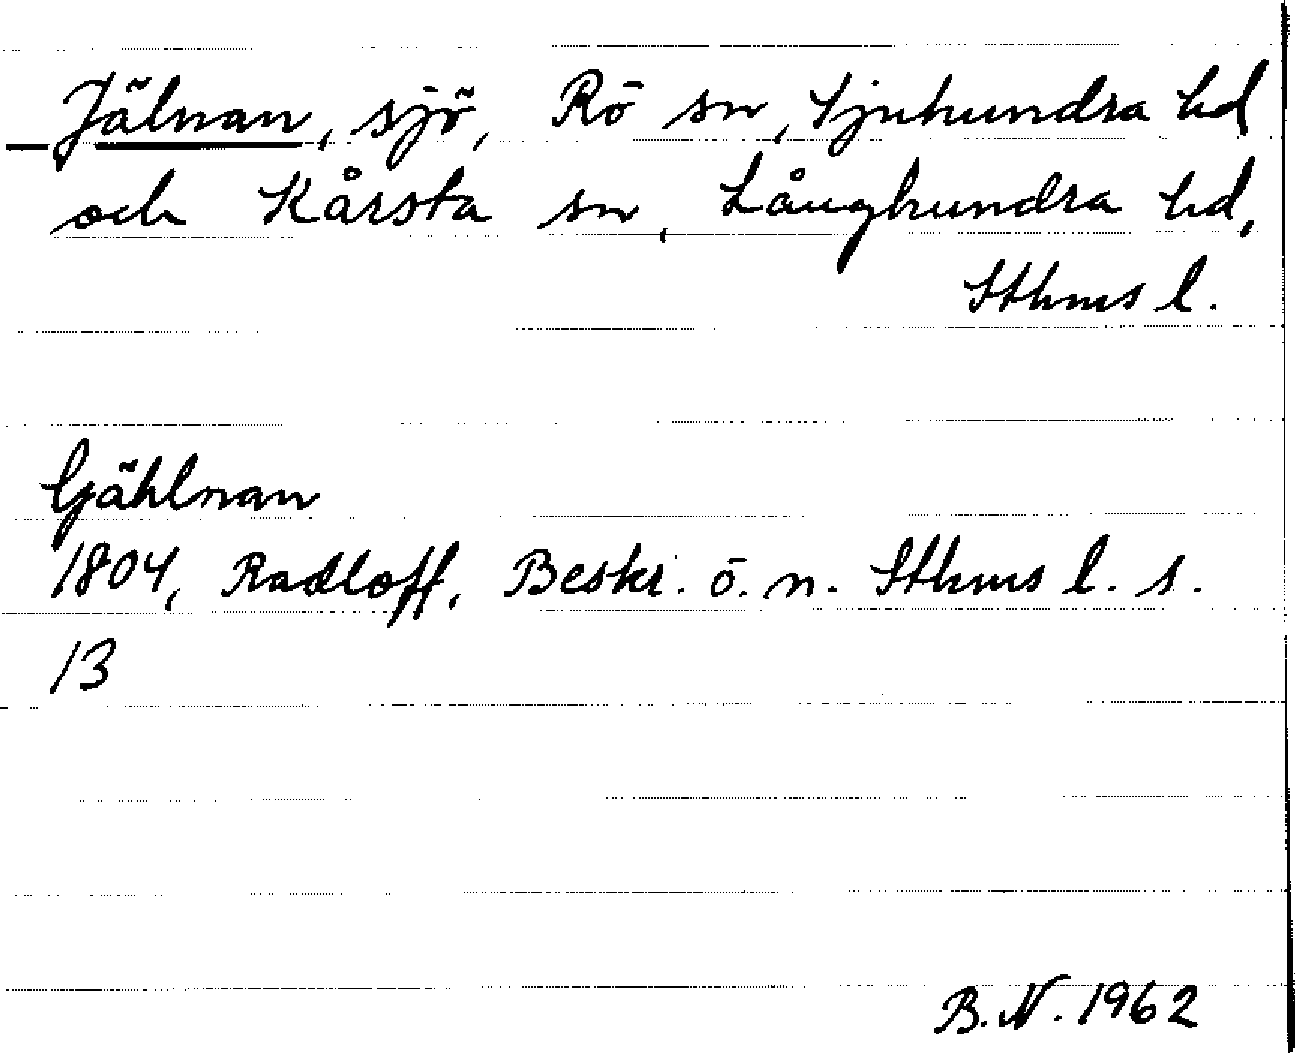 Jälnan, sjö, Rö sn, Sjuhundra hd
och Kårsta sn, Långhundra hd,
Sthms l.
Gjählnan
1804, Radloff, Beskr. ö. n. Sthms l. s.
13
B.N. 1962